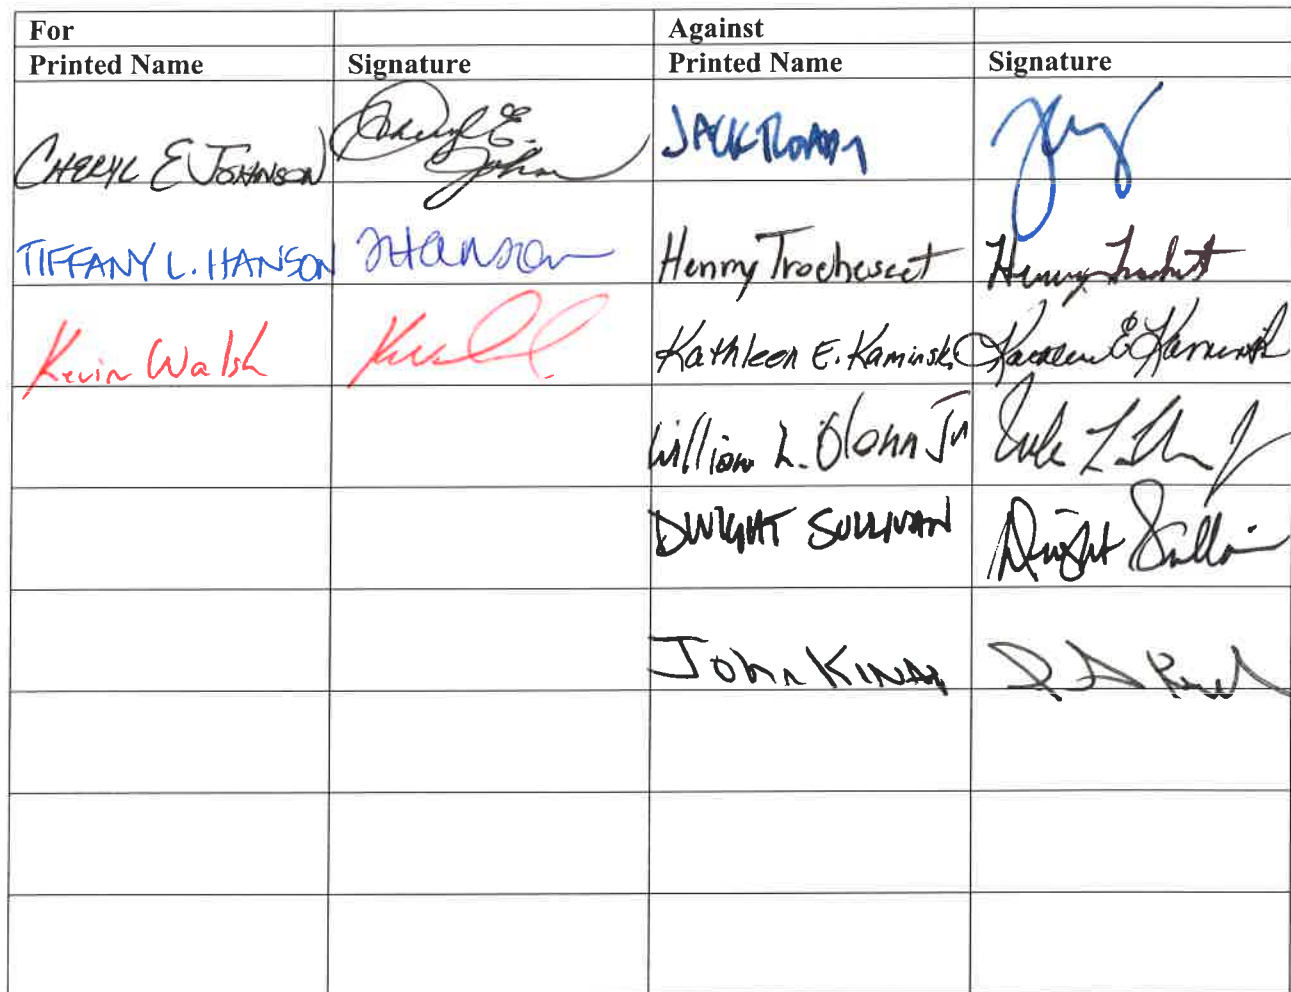 For Against
Printed Name Signature Printed Name Signature
CHERYL E JOHNSON Cheryl E. John JACK ROADY
TIFFANY L. HANSON Hanson Henry Trochesset Henry
Kevin Walsh Kathleen E. Kaminski Kathleen E Kaminski
William L. Glenn Jr
DWIGHT SULLIVAN Dwight Sullivan
John KINARD